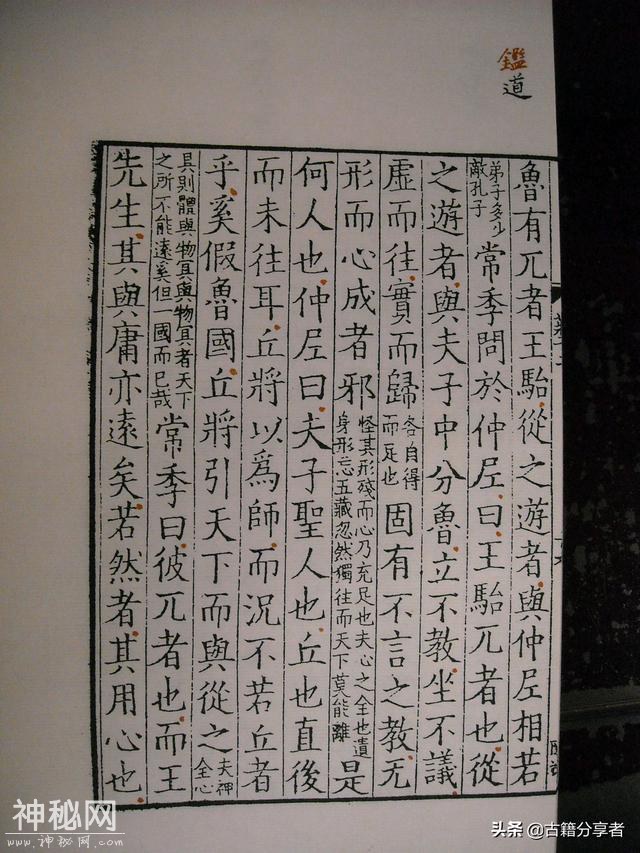 鑑道
魯有兀者王駘從之遊者與仲尼相若
弟子多少
敵孔子
常季問於仲尼曰王駘兀者也從
之遊者與夫子中分魯立不教坐不議
虛而往實而歸
各自得
而足也
固有不言之教无
形而心成者邪
怪其形殘而心乃充足也夫心之全也遺
身形忘五藏忽然獨往而天下莫能離
是
何人也仲尼曰夫子聖人也丘也直後
而未往耳丘將以爲師而況不若丘者
乎奚假魯國丘將引天下而與從之
夫神
全心
具則體與物冥與物冥者天下
之所不能遠奚但一國而已哉
常季曰彼兀者也而王
先生其與庸亦遠矣若然者其用心也
神秘网
www.神秘网.com
头条 @古籍分享者